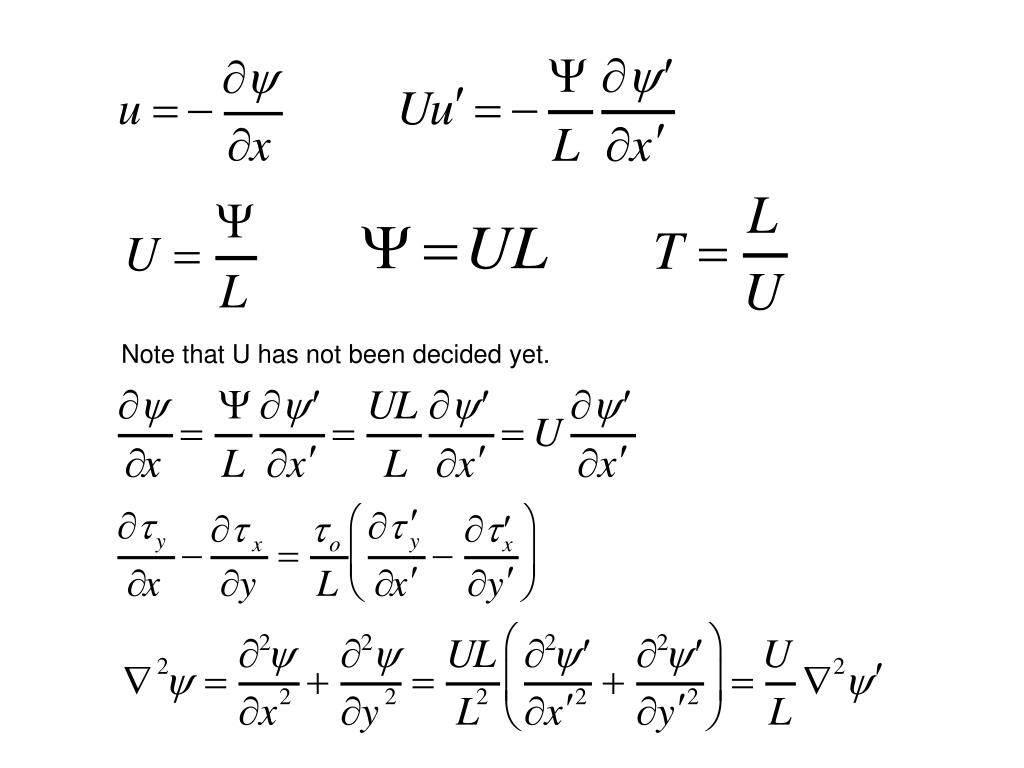 u = − ∂ψ/∂x    Uu′ = − Ψ/L ∂ψ′/∂x′
U = Ψ/L    Ψ = UL    T = L/U
Note that U has not been decided yet.
∂ψ/∂x = Ψ/L ∂ψ′/∂x′ = UL/L ∂ψ′/∂x′ = U ∂ψ′/∂x′
∂τ_y/∂x − ∂τ_x/∂y = τ_o/L (∂τ′_y/∂x′ − ∂τ′_x/∂y′)
∇²ψ = ∂²ψ/∂x² + ∂²ψ/∂y² = UL/L² (∂²ψ′/∂x′² + ∂²ψ′/∂y′²) = U/L ∇²ψ′